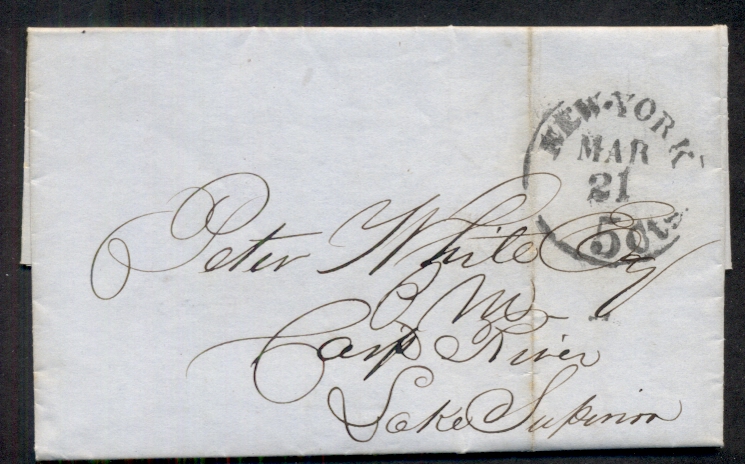 NEW-YORK
MAR
21
5 cts
Peter White Esq
P M
Carp River
Lake Superior